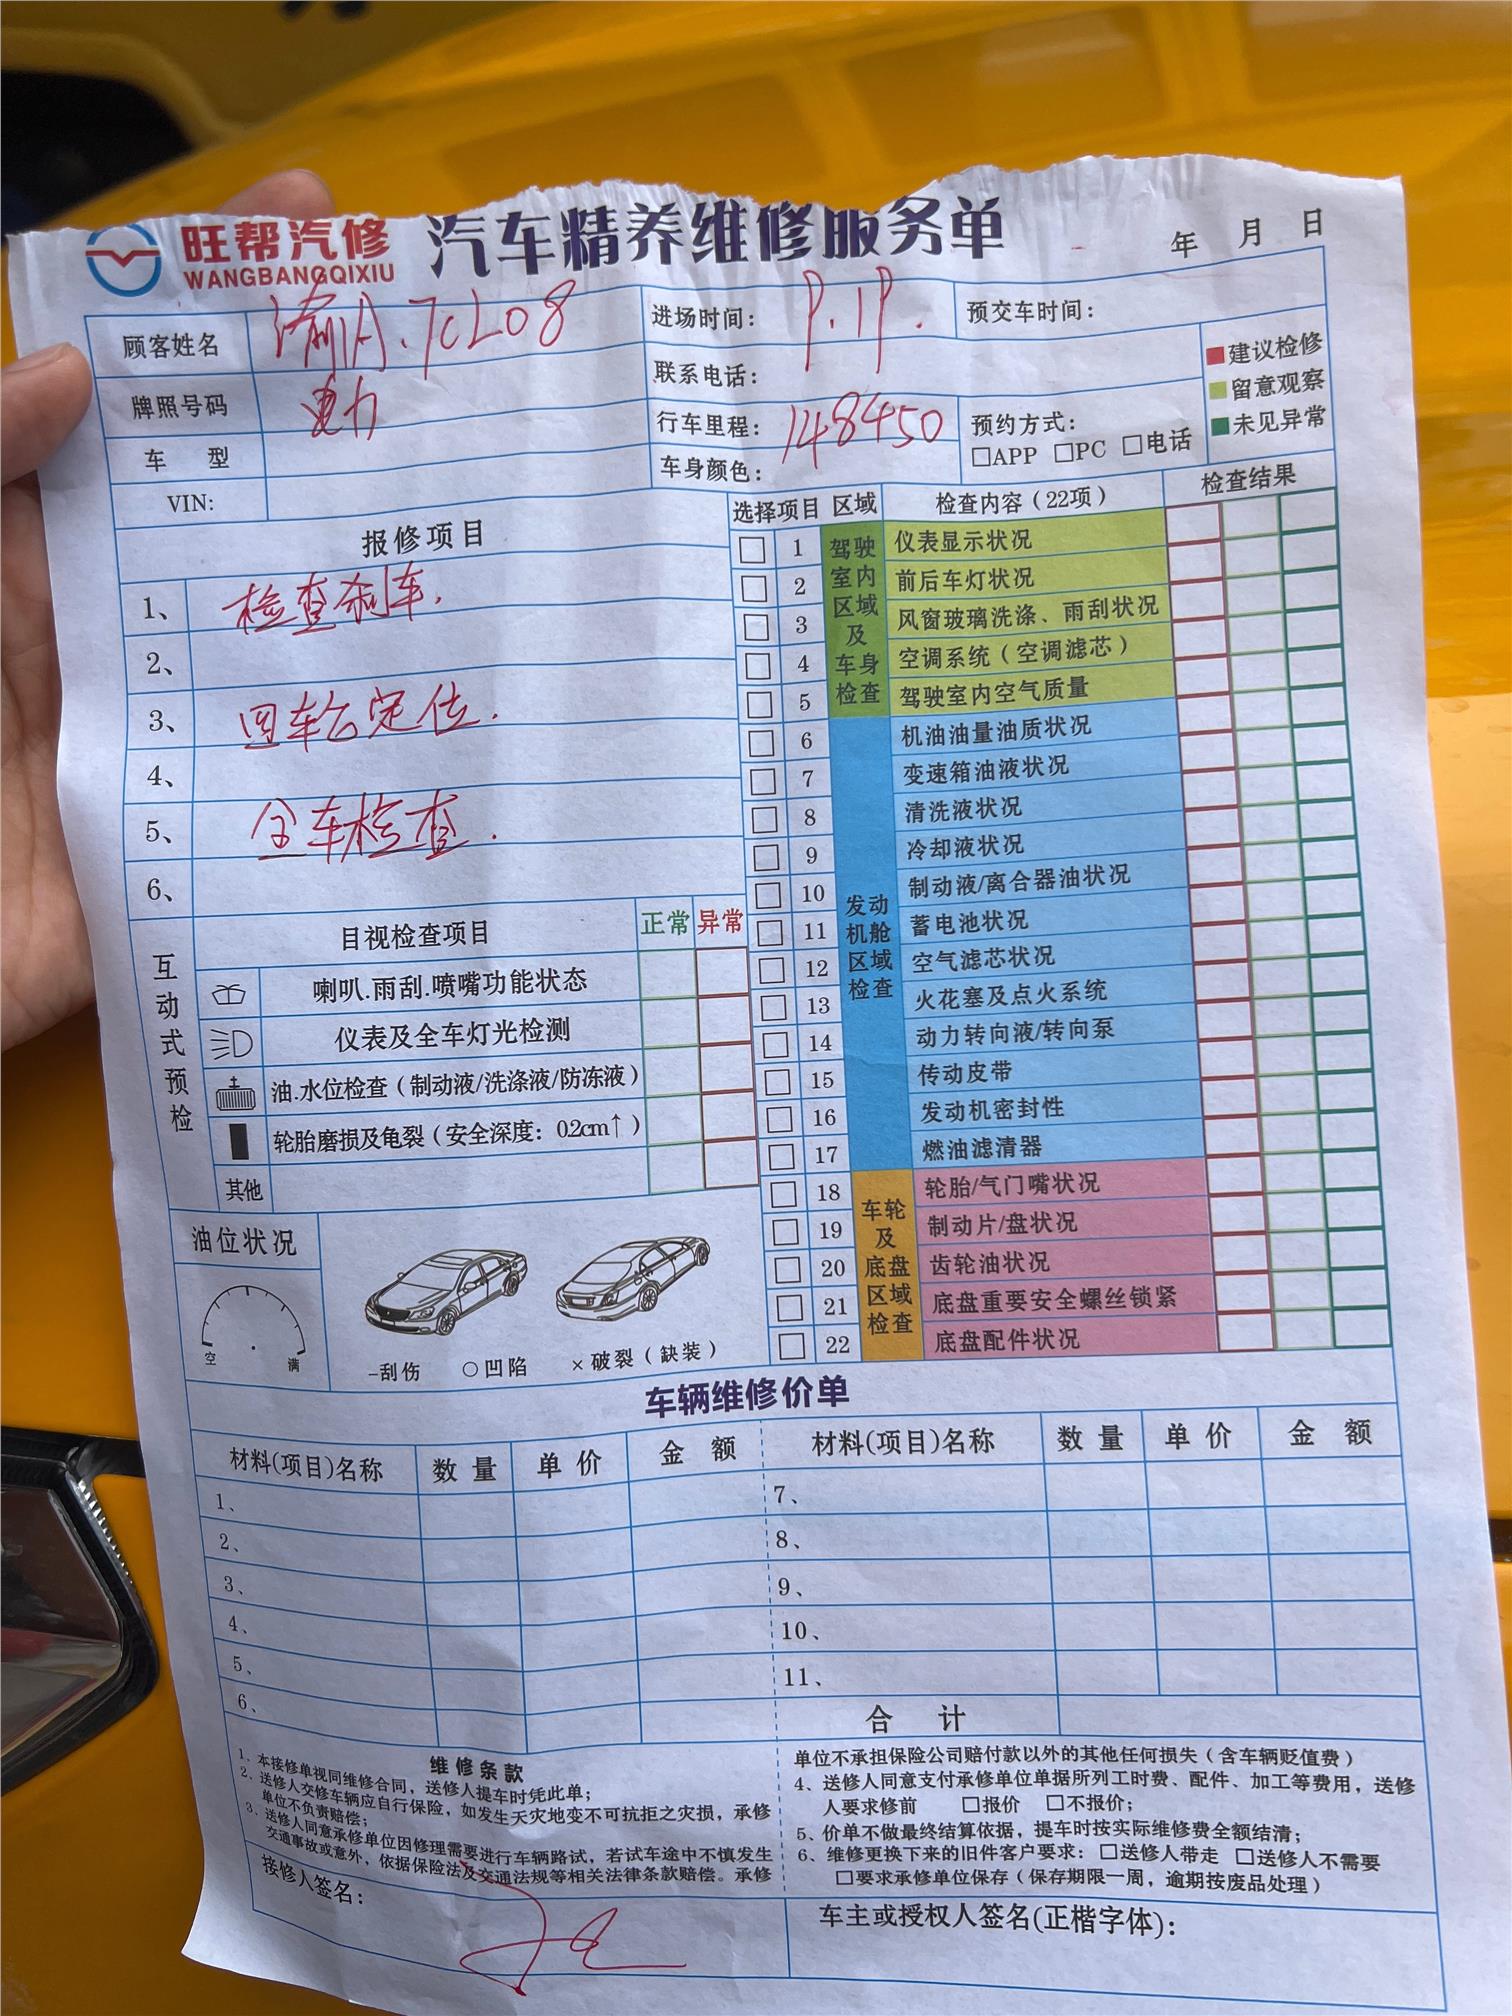 旺帮汽修
WANGBANGQIXIU
汽车精养维修服务单
年 月 日
顾客姓名 渝A.7CL08
进场时间： 9.19.
预交车时间：
牌照号码 电力
联系电话：
车 型
行车里程： 148450
预约方式：
□APP □PC □电话
VIN:
车身颜色：
建议检修
留意观察
未见异常
报修项目
1、 检查刹车.
2、
3、 四轮定位.
4、
5、 全车检查.
6、
选择项目 区域 检查内容（22项） 检查结果
驾驶室内区域及车身检查
1 仪表显示状况
2 前后车灯状况
3 风窗玻璃洗涤、雨刮状况
4 空调系统（空调滤芯）
5 驾驶室内空气质量
发动机舱区域检查
6 机油油量油质状况
7 变速箱油液状况
8 清洗液状况
9 冷却液状况
10 制动液/离合器油状况
11 蓄电池状况
12 空气滤芯状况
13 火花塞及点火系统
14 动力转向液/转向泵
15 传动皮带
16 发动机密封性
17 燃油滤清器
车轮及底盘区域检查
18 轮胎/气门嘴状况
19 制动片/盘状况
20 齿轮油状况
21 底盘重要安全螺丝锁紧
22 底盘配件状况
互动式预检
目视检查项目 正常 异常
喇叭.雨刮.喷嘴功能状态
仪表及全车灯光检测
油.水位检查（制动液/洗涤液/防冻液）
轮胎磨损及龟裂（安全深度：0.2cm↑）
其他
油位状况
空 满
-刮伤 ○凹陷 ×破裂（缺装）
车辆维修价单
材料(项目)名称 数 量 单 价 金 额 材料(项目)名称 数 量 单 价 金 额
1、 7、
2、 8、
3、 9、
4、 10、
5、 11、
6、 合 计
维修条款
1、本接修单视同维修合同，送修人提车时凭此单；
2、送修人交修车辆应自行保险，如发生天灾地变不可抗拒之灾损，承修
单位不负责赔偿；
3、送修人同意承修单位因修理需要进行车辆路试，若试车途中不慎发生
交通事故或意外，依据保险法及交通法规等相关法律条款赔偿。承修
单位不承担保险公司赔付款以外的其他任何损失（含车辆贬值费）
4、送修人同意支付承修单位单据所列工时费、配件、加工等费用，送修
人要求修前 □报价 □不报价；
5、价单不做最终结算依据，提车时按实际维修费全额结清；
6、维修更换下来的旧件客户要求：□送修人带走 □送修人不需要
□要求承修单位保存（保存期限一周，逾期按废品处理）
接修人签名：
车主或授权人签名(正楷字体)：